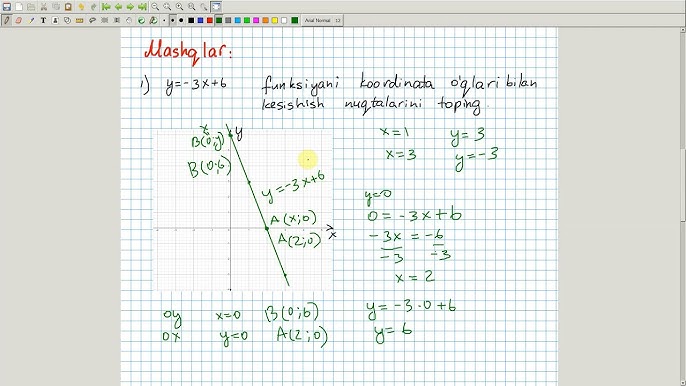 Arial Normal 12
Mashqlar:
1) y=-3x+6 funksiyani koordinata o'qlari bilan
kesishish nuqtalarini toping.
x=1 y=3
x=3 y=-3
y
B(0;y)
B(0;6)
y=-3x+6
A(x;0)
A(2;0)
x
y=0
0=-3x+6
-3x = -6
-3 -3
x=2
y=-3·0+6
y=6
oy x=0 B(0;6)
ox y=0 A(2;0)